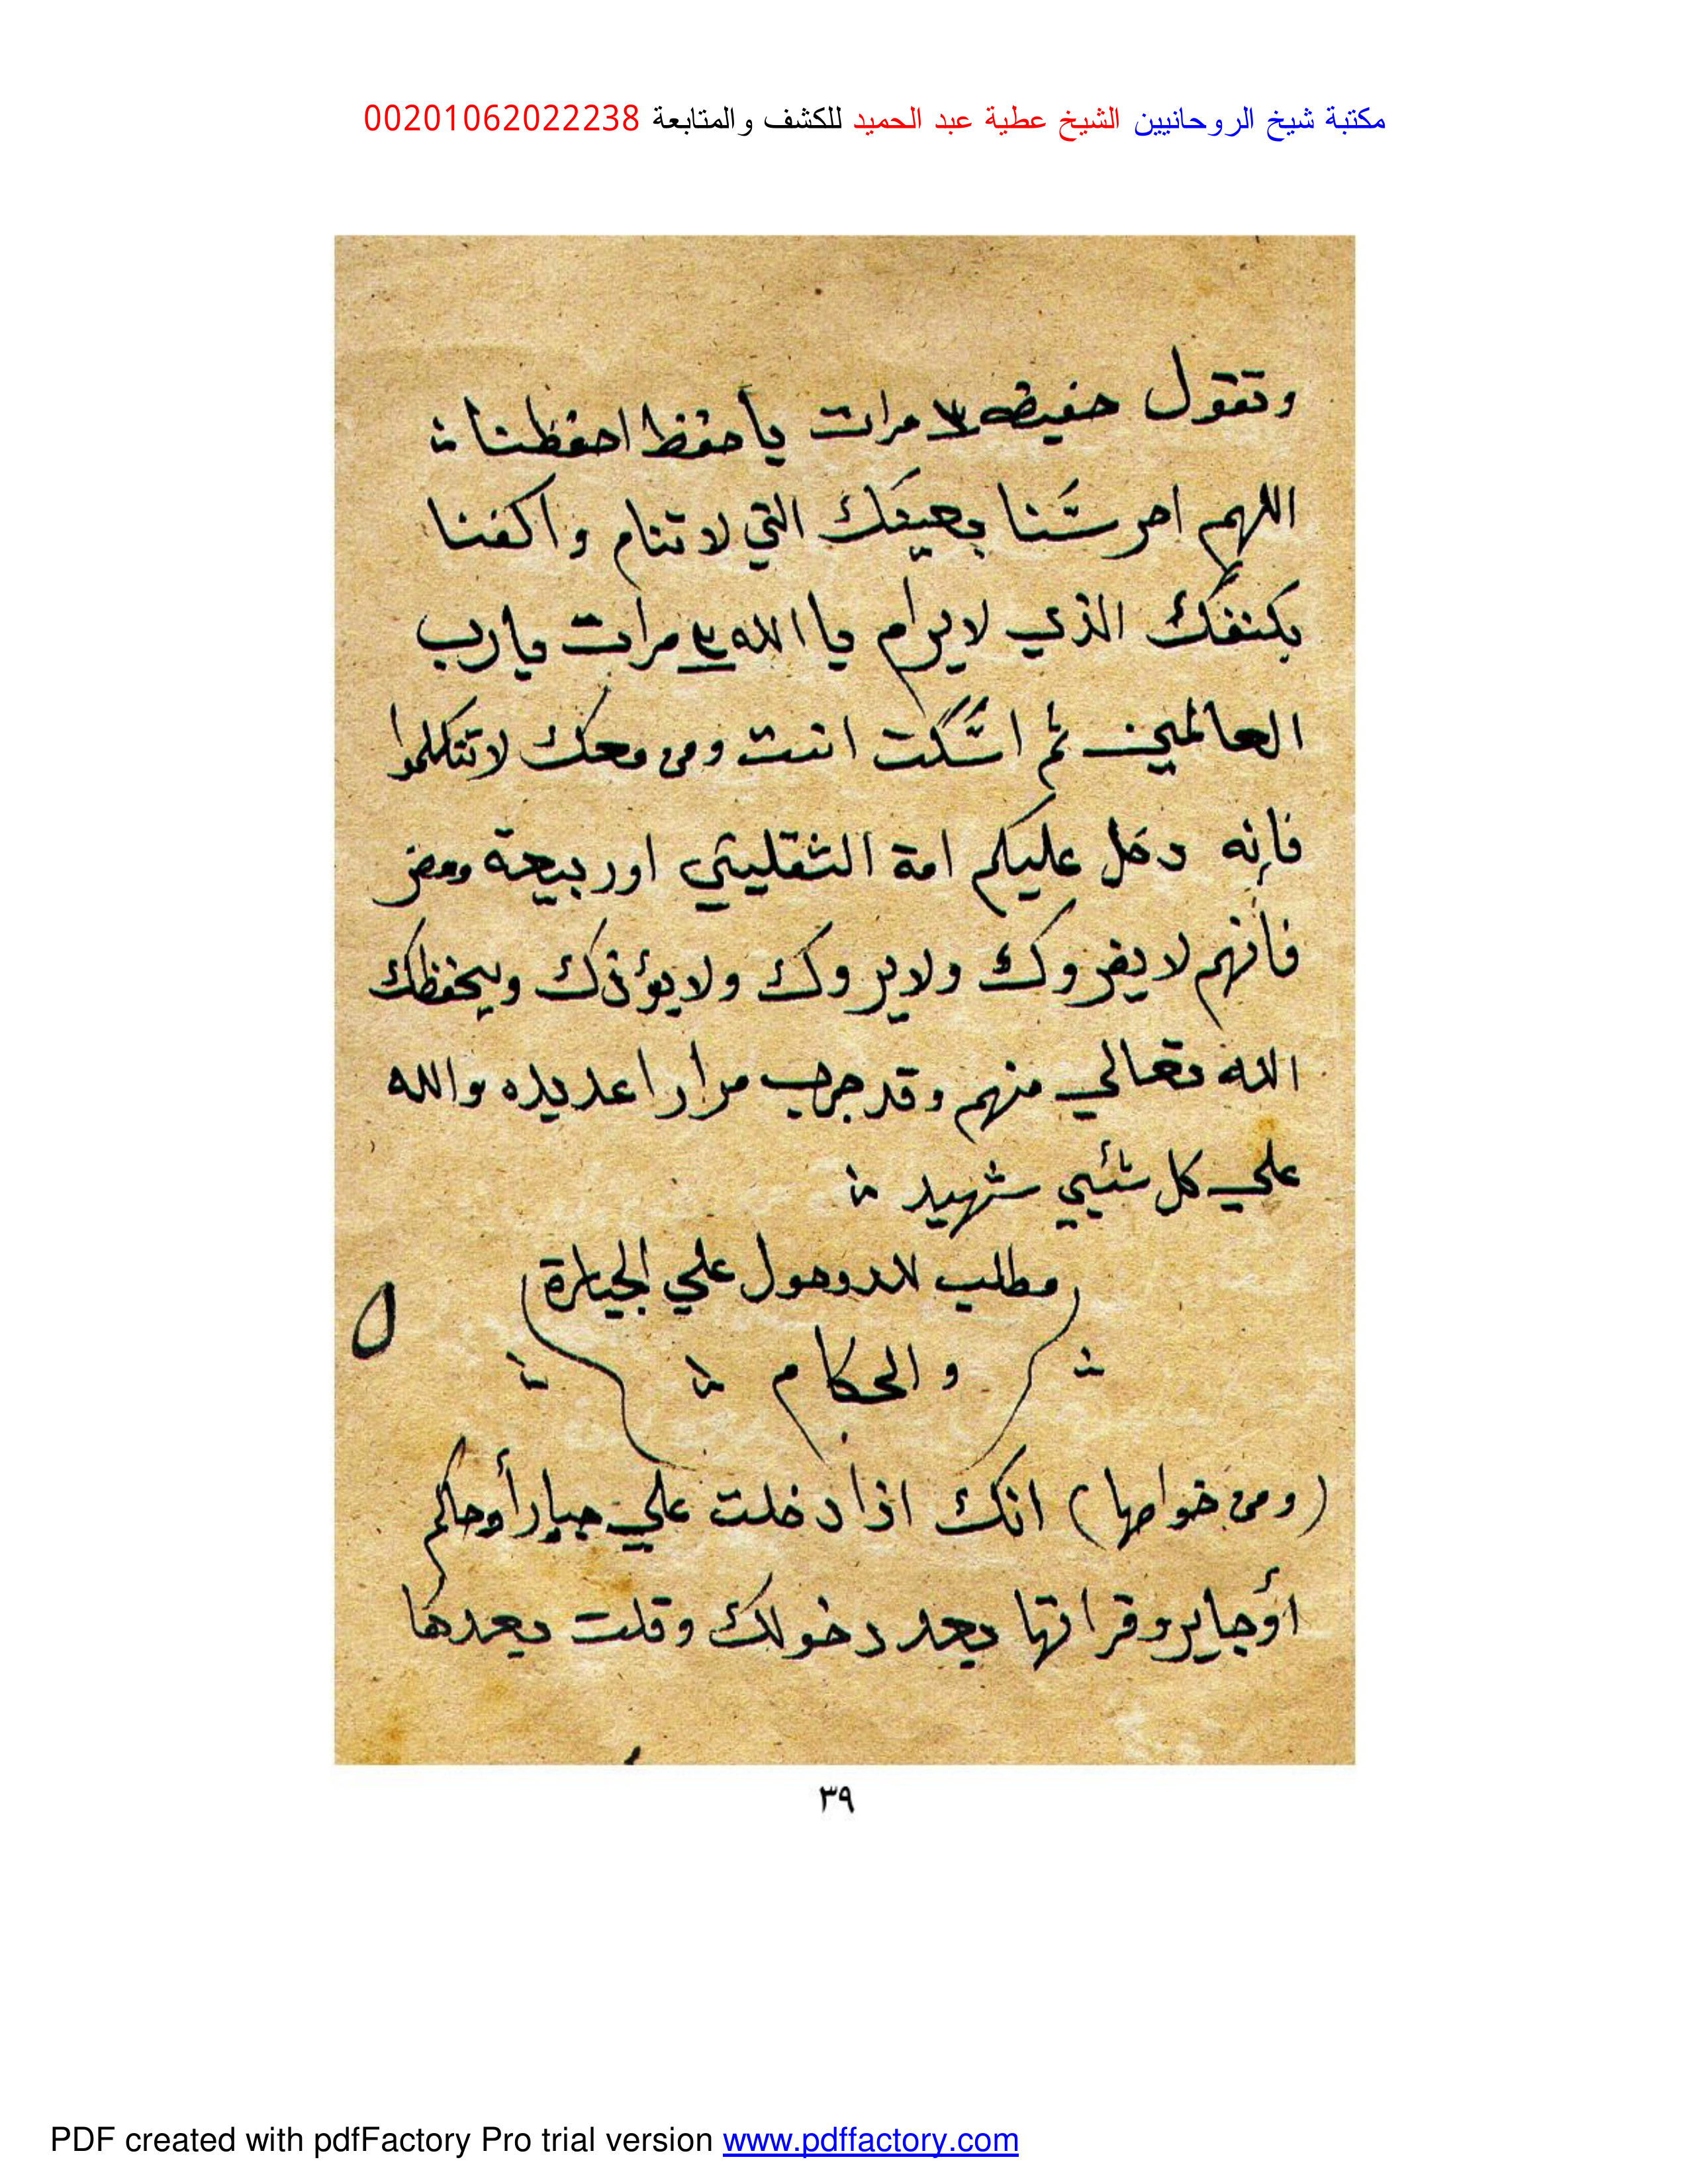 مكتبة شيخ الروحانيين الشيخ عطية عبد الحميد للكشف والمتابعة 00201062022238
وتقول حفيظه ٣ مرات يا حفظ احفظنا
اللهم احرسنا بعينك التي لا تنام واكفنا
بكنفك الذي لا يرام يا الله مرات يا رب
العالمين ثم اسكت انت ومن معك لا تتكلموا
فإنه دخل عليكم امة الثقلين او ربيعة ومضر
فانهم لا يضروك ولا يروك ولا يؤذك ويحفظك
الله تعالي منهم وقد جرب مرارا عديده والله
علي كل شئيي شهيد
مطلب للدوخول علي الجبابرة
والحكام
٥
(ومن خواصها) انك اذا دخلت علي جبار أو حاكم
أو جاير وقراتها بعد دخولك وقلت بعدها
٣٩
PDF created with pdfFactory Pro trial version www.pdffactory.com